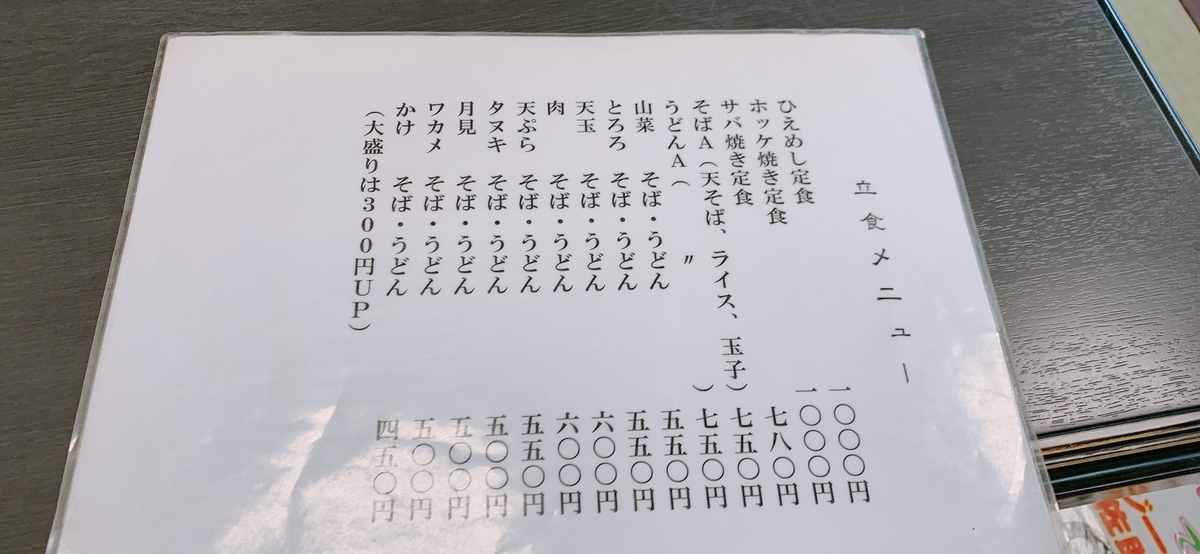 立食メニュー
ひえめし定食 一〇〇〇円
ホッケ焼き定食 一〇〇〇円
サバ焼き定食 七八〇円
そばA（天そば、ライス、玉子） 七五〇円
うどんA（ 〃 ） 七五〇円
山菜 そば・うどん 五五〇円
とろろ そば・うどん 五五〇円
天玉 そば・うどん 六〇〇円
肉 そば・うどん 六〇〇円
天ぷら そば・うどん 五五〇円
タヌキ そば・うどん 五〇〇円
月見 そば・うどん 五〇〇円
ワカメ そば・うどん 五〇〇円
かけ そば・うどん 四五〇円
（大盛りは300円UP）